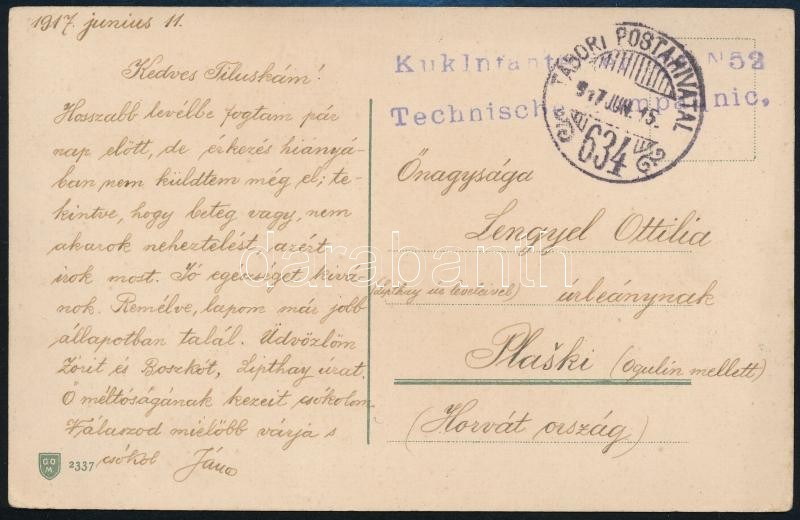 1917. junius 11.
Kedves Tiluskám!
Hosszabb levélbe fogtam pár
nap elött, de érkezés hiányá-
ban nem küldtem még el; te-
kintve, hogy beteg vagy, nem
akarok neheztelést, azért
irok most. Jó egeszséget kivá-
nok. Remélve, lapom már jobb
állapotban talál. Üdvözlöm
Zórit és Boszkót, Lipthay urat.
Ő méltóságának kezeit csókolom
Válaszod mielőbb várja s
csókol János
GOM
2337
KukInfant N52
Technische Compagnie.
TÁBORI POSTAHIVATAL
917 JUN. 15.
634
Őnagysága
Lengyel Ottilia
(Lipthay úr leveleivel) úrleánynak
Plaški (Ogulin mellett)
(Horvát ország)
darabanth